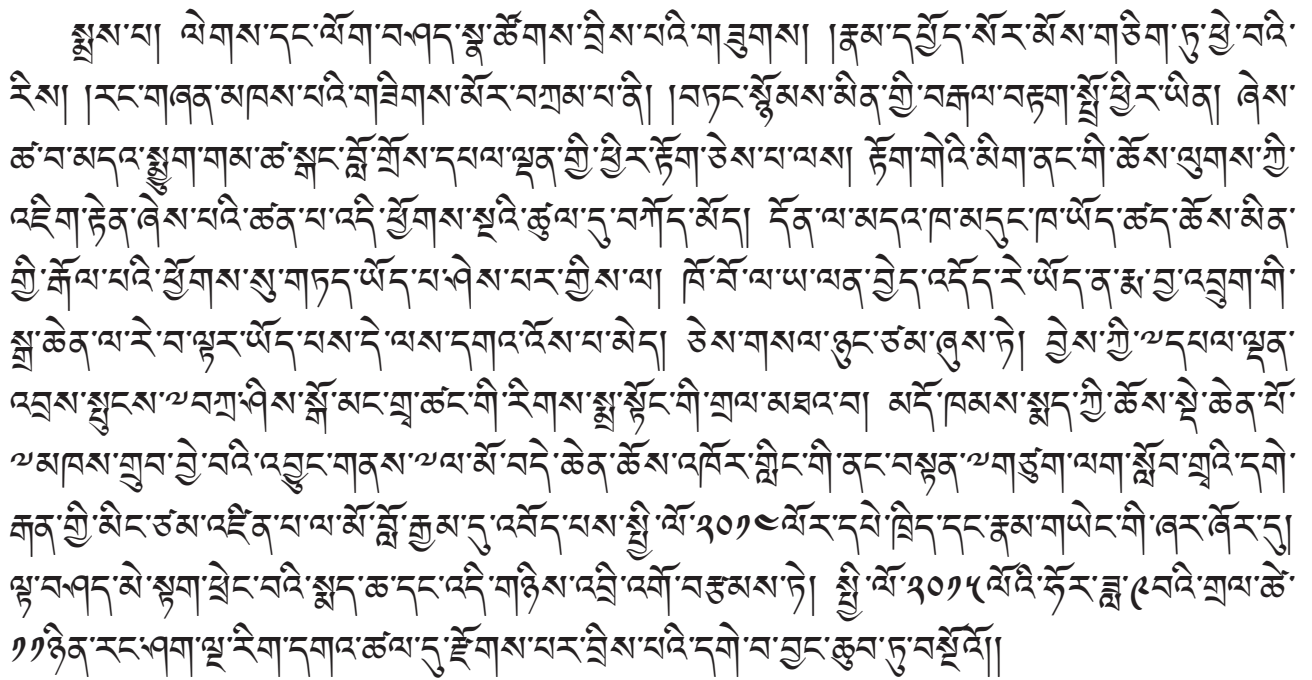 སྨྲས་པ། ལེགས་དང་ལོག་བཤད་སྣ་ཚོགས་བྲིས་པའི་གཟུགས། །རྣམ་དཔྱོད་སོར་མོས་གཅིག་ཏུ་ཕྱེ་བའི་
རིས། །རང་གཞན་མཁས་པའི་གཟིགས་མོར་བཀྲམ་པ་ནི། །བཏང་སྙོམས་མིན་གྱི་བརྒལ་བརྟག་སྤྲོ་ཕྱིར་ཡིན། ཞེས་
ཚ་བ་མདའ་སྨྱུག་གམ་ཚ་སྒང་བློ་གྲོས་དཔལ་ལྡན་གྱི་ཕྱིར་རྟོག་ཅེས་པ་ལས། རྟོག་གེའི་མིག་ནང་གི་ཆོས་ལུགས་ཀྱི་
འཇིག་རྟེན་ཞེས་པའི་ཚན་པ་འདི་ཕྱོགས་སྔའི་ཚུལ་དུ་བཀོད་མོད། དོན་ལ་མདའ་ཁ་མདུང་ཁ་ཡོད་ཚད་ཆོས་མིན་
གྱི་རྒོལ་པའི་ཕྱོགས་སུ་གཏད་ཡོད་པ་ཤེས་པར་གྱིས་ལ། ཁོ་བོ་ལ་ཡ་ལན་བྱེད་འདོད་རེ་ཡོད་ན་རྨ་བྱ་འབྲུག་གི་
སྒྲ་ཆེན་ལ་རེ་བ་ལྟར་ཡོད་པས་དེ་ལས་དགའ་འོས་པ་མེད། ཅེས་གསལ་ཉུང་ཙམ་ཞུས་ཏེ། བྱེས་ཀྱི་༸དཔལ་ལྡན་
འབྲས་སྤུངས་༸བཀྲ་ཤིས་སྒོ་མང་གྲྭ་ཚང་གི་རིགས་སྨྲ་སྟོང་གི་གྲལ་མཐའ་བ། མདོ་ཁམས་སྨད་ཀྱི་ཆོས་སྡེ་ཆེན་པོ་
༸མཁས་གྲུབ་བྱེ་བའི་འབྱུང་གནས་༸ལ་མོ་བདེ་ཆེན་ཆོས་འཁོར་གླིང་གི་ནང་བསྟན་༸གཙུག་ལག་སློབ་གྲྭའི་དགེ་
རྒན་གྱི་མིང་ཙམ་འཛིན་པ་ལ་མོ་བློ་རྒྱམ་དུ་འབོད་པས་སྤྱི་ལོ་༢༠༡༤ལོར་དཔེ་ཁྲིད་དང་རྣམ་གཡེང་གི་ཞར་ཞོར་དུ།
ལྟ་བཤད་མེ་སྟག་ཕྲེང་བའི་སྨད་ཆ་དང་འདི་གཉིས་འབྲི་འགོ་བརྩམས་ཏེ། སྤྱི་ལོ་༢༠༡༥ལོའི་ཧོར་ཟླ་༩བའི་གྲལ་ཚེ་
༡༡ཉིན་རང་ཤག་ལྔ་རིག་དགའ་ཚལ་དུ་རྫོགས་པར་བྲིས་པའི་དགེ་བ་བྱང་ཆུབ་ཏུ་བསྔོའོ།།